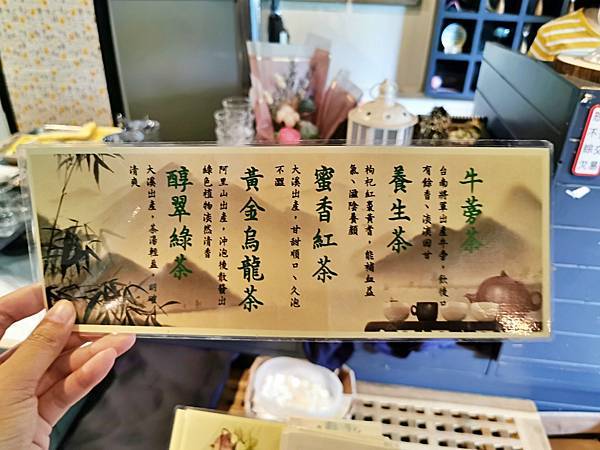 牛蒡茶
台南將軍出產牛蒡，飲後口
有餘香、淡淡回甘
養生茶
枸杞紅棗黃耆，能補血益
氣、滋陰養顏
蜜香紅茶
大溪出產，甘甜順口、久泡
不澀
黃金烏龍茶
阿里山出產，沖泡後散發出
綠色植物淡然清香
醇翠綠茶
大溪出產，茶湯輕盈、明確
清爽